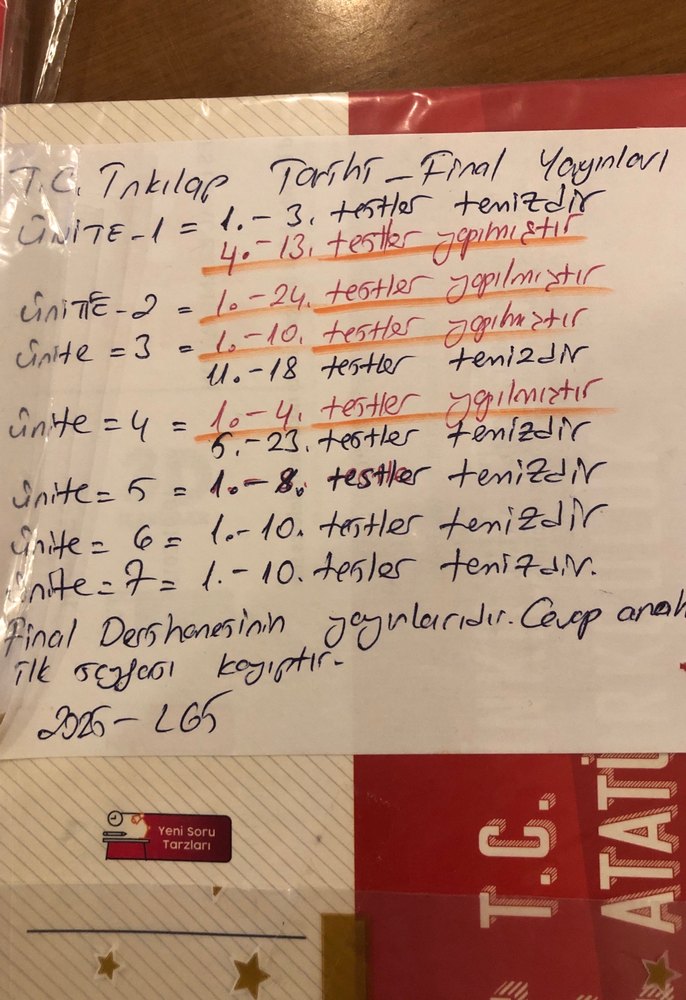 T.C. İnkılap Tarihi - Final Yayınları
ÜNİTE-1 = 1.-3. testler temizdir
4.-13. testler yapılmıştır
ÜNİTE-2 = 1.-24. testler yapılmıştır
ünite = 3 = 1.-10. testler yapılmıştır
11.-18 testler temizdir
ünite = 4 = 1.-4. testler yapılmıştır
5.-23. testler temizdir
ünite = 5 = 1.-8. testler temizdir
ünite = 6 = 1.-10. testler temizdir
ünite = 7 = 1.-10. tesler temizdir.
Final Dershanesinin yayınlarıdır. Cevap anah
ilk sayfası kayıptır.
2025-LGS
Yeni Soru
Tarzları
T.C.
ATATÜ